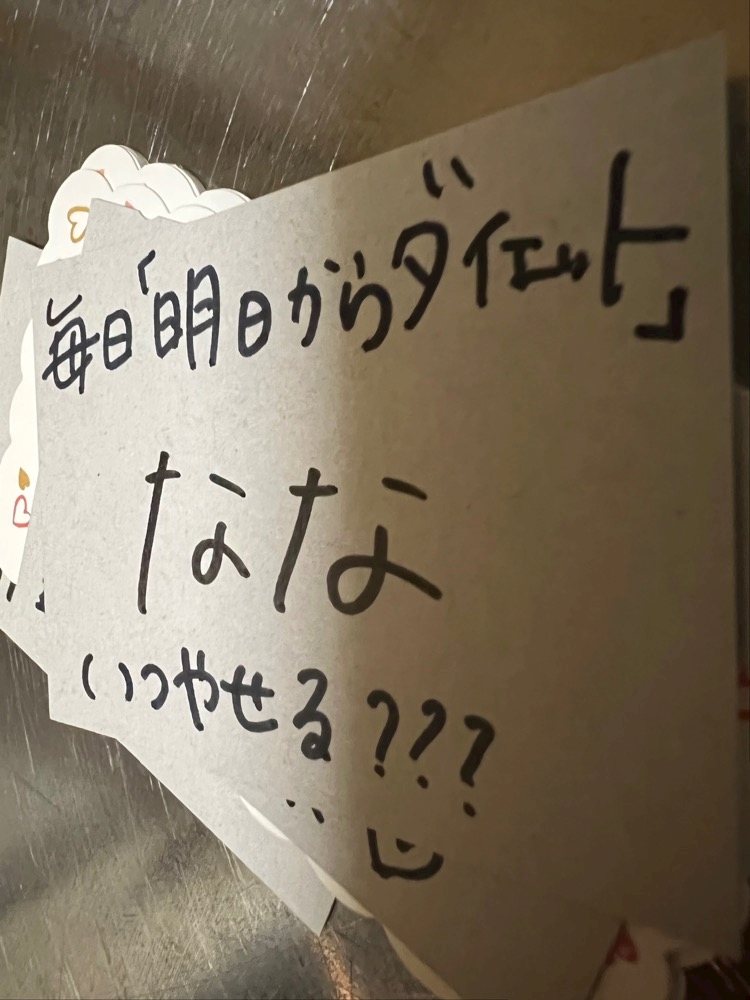 毎日「明日からダイエット」
なな
いつやせる???